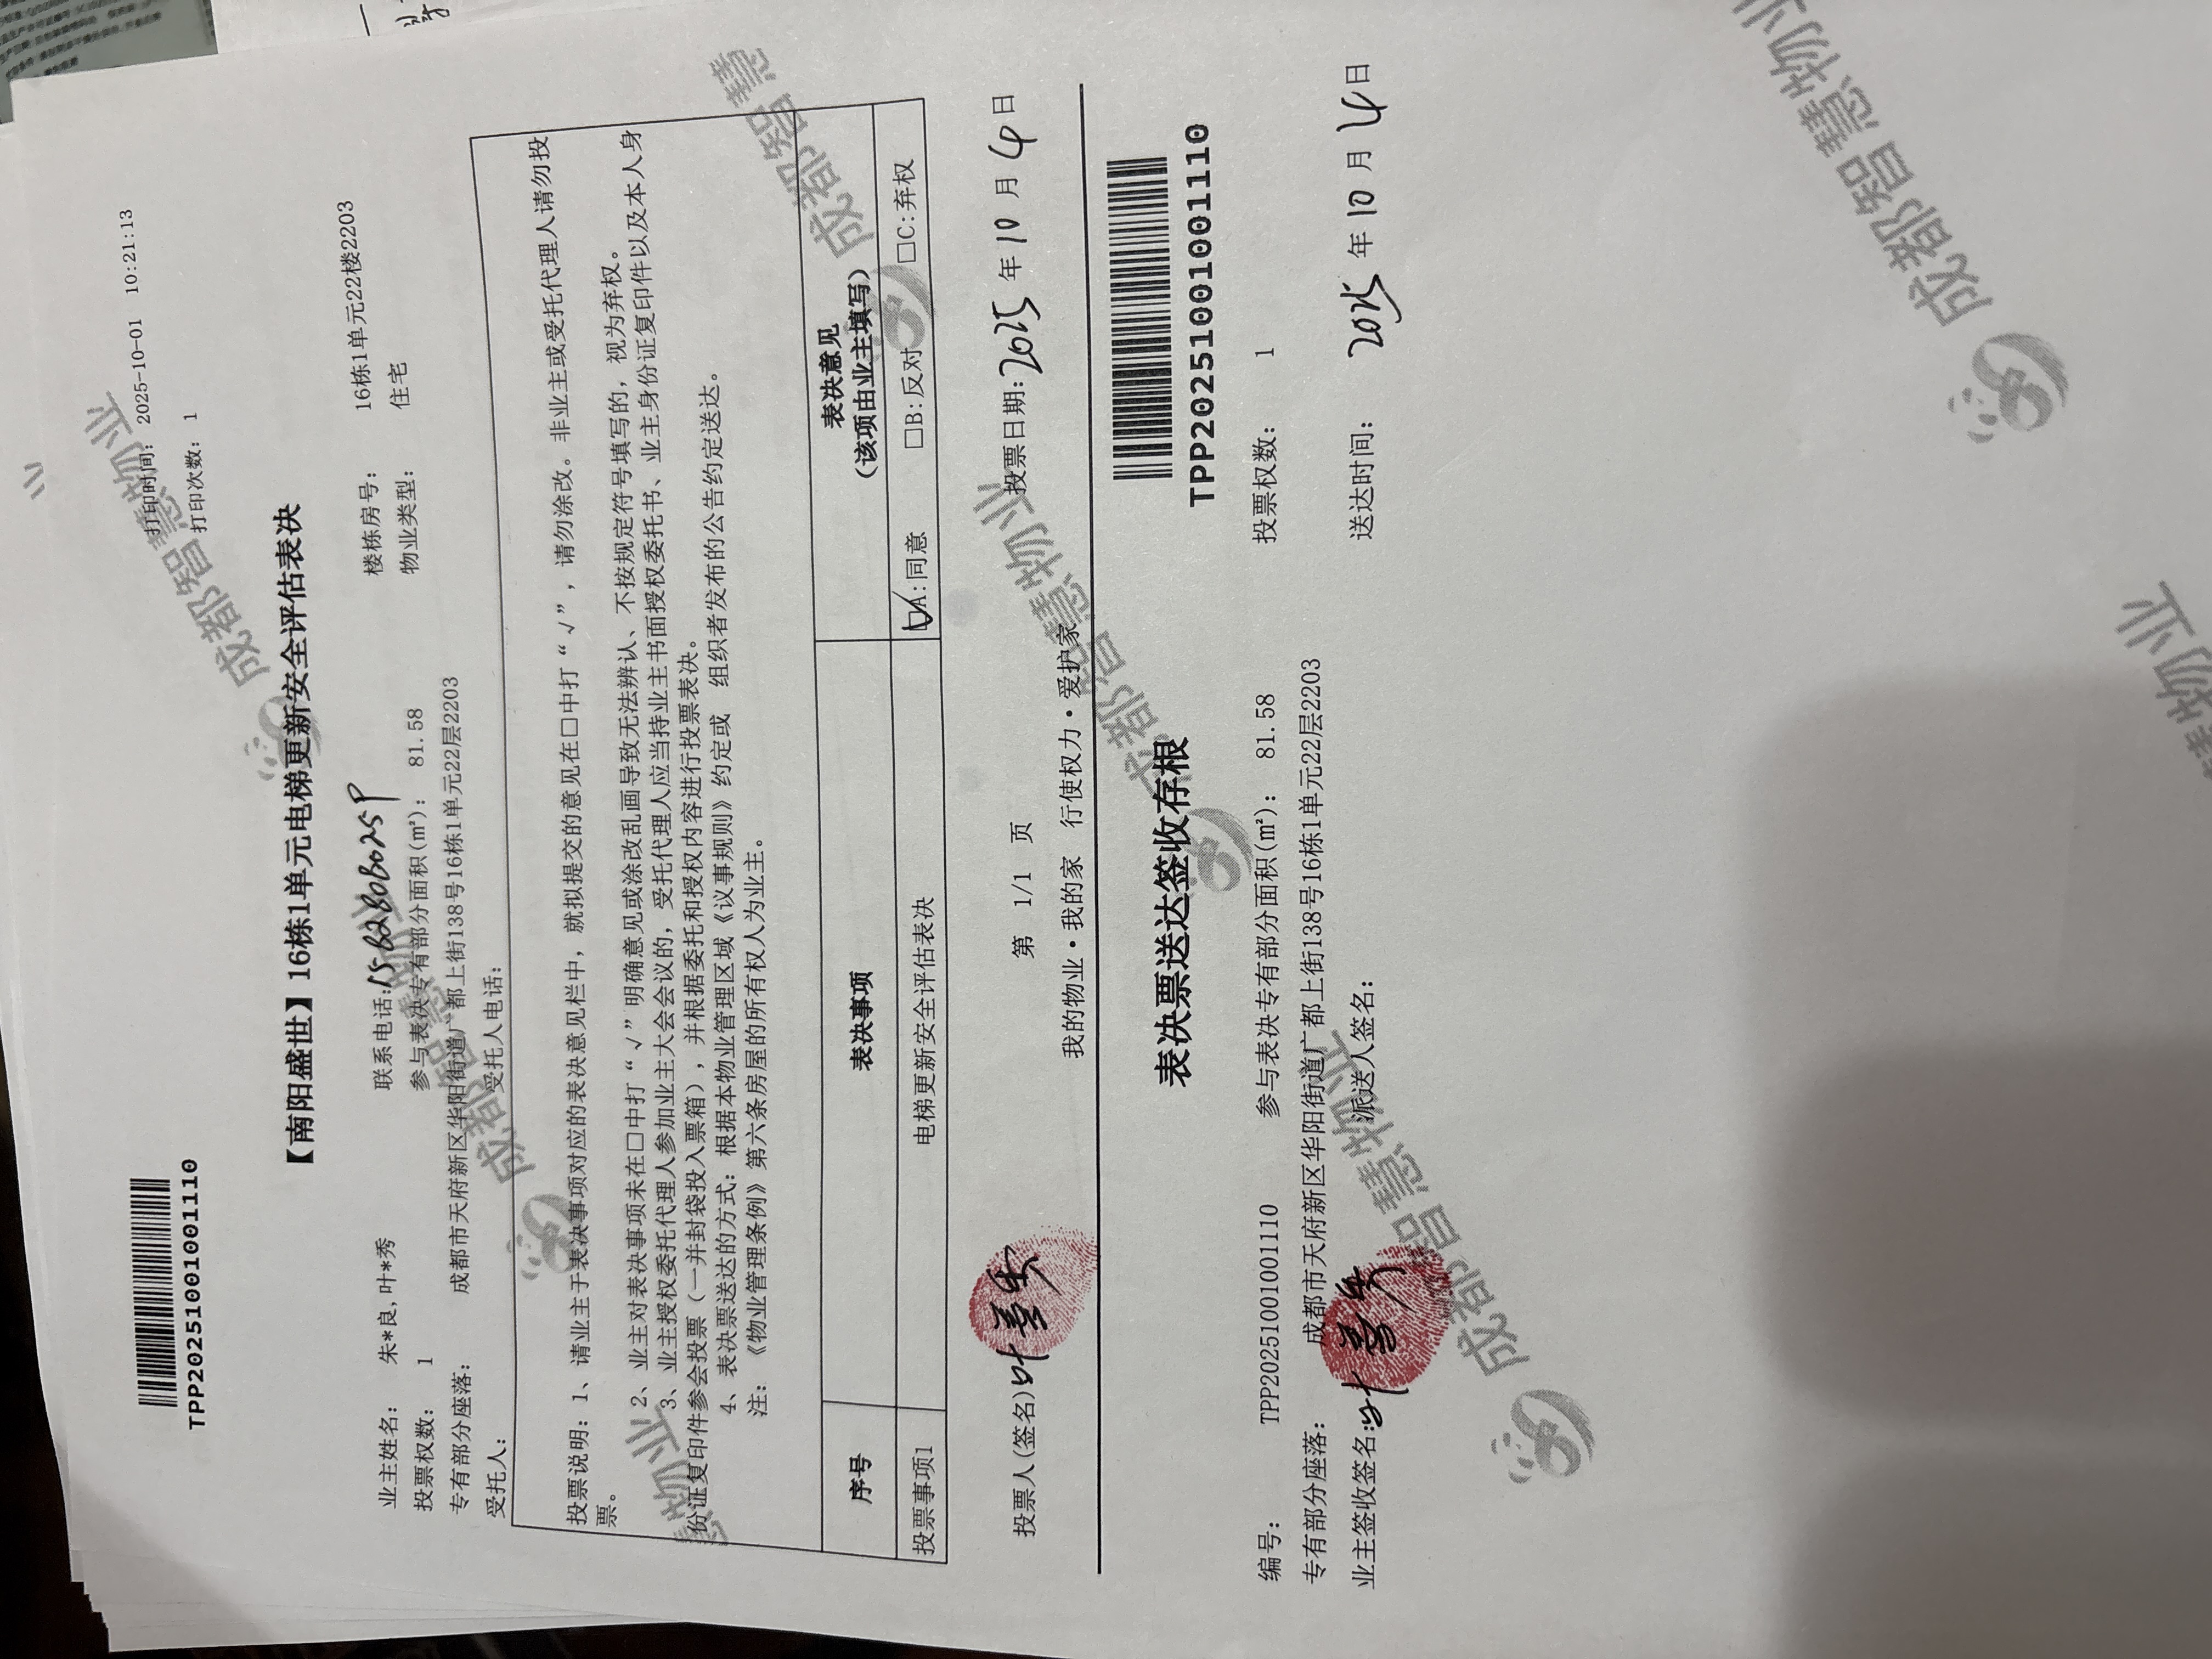 TPP20251001001110
打印时间： 2025-10-01 10:21:13
打印次数： 1
【南阳盛世】16栋1单元电梯更新安全评估表决
业主姓名： 朱*良,叶*秀 联系电话: 楼栋房号： 16栋1单元22楼2203
投票权数： 1 参与表决专有部分面积(㎡)： 81.58 物业类型： 住宅
专有部分座落： 成都市天府新区华阳街道广都上街138号16栋1单元22层2203
受托人： 受托人电话：
投票说明：1、请业主于表决事项对应的表决意见栏中，就拟提交的意见在□中打“√”，请勿涂改。非业主或受托代理人请勿投
票。
2、业主对表决事项未在□中打“√”明确意见或涂改乱画导致无法辨认、不按规定符号填写的，视为弃权。
3、业主授权委托代理人参加业主大会会议的，受托代理人应当持业主书面授权委托书、业主身份证复印件以及本人身
份证复印件参会投票（一并封袋投入票箱），并根据委托和授权内容进行投票表决。
4、表决票送达的方式：根据本物业管理区域《议事规则》约定或 组织者发布的公告约定送达。
注：《物业管理条例》第六条房屋的所有权人为业主。
序号 表决事项 表决意见
（该项由业主填写）
投票事项1 电梯更新安全评估表决 ☑A:同意 □B:反对 □C:弃权
投票人(签名) 叶 秀 第 1/1 页 投票日期: 2025 年 10 月 4 日
我的物业·我的家 行使权力·爱护家
表决票送达签收存根
TPP20251001001110
编号： TPP20251001001110 参与表决专有部分面积(㎡)： 81.58 投票权数： 1
专有部分座落： 成都市天府新区华阳街道广都上街138号16栋1单元22层2203
业主签收签名: 叶 秀 派送人签名： 送达时间： 2025 年 10 月 4 日
成都智慧物业
成都智慧物业
慧物业
成都智慧
成都智慧物业
成都智慧物业
成都智慧物业
成都智慧物业